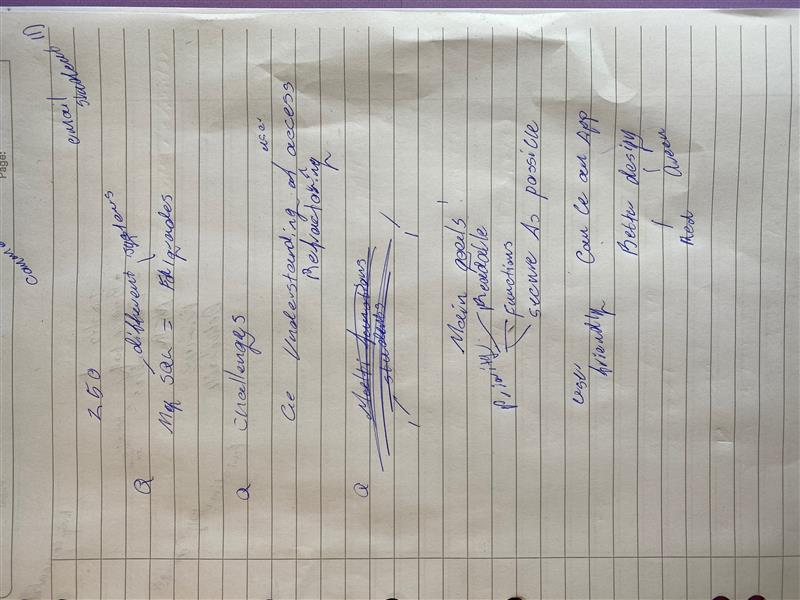 Page:
11)
email
student
250
Q different systems
My SQL = grades
Q Challenges
use
Understanding of access
Refractoring
Q Multi functions
students
Main goals
priority Readable
Functions
secure As possible
user friendly Can be an App
Better design
Red Green